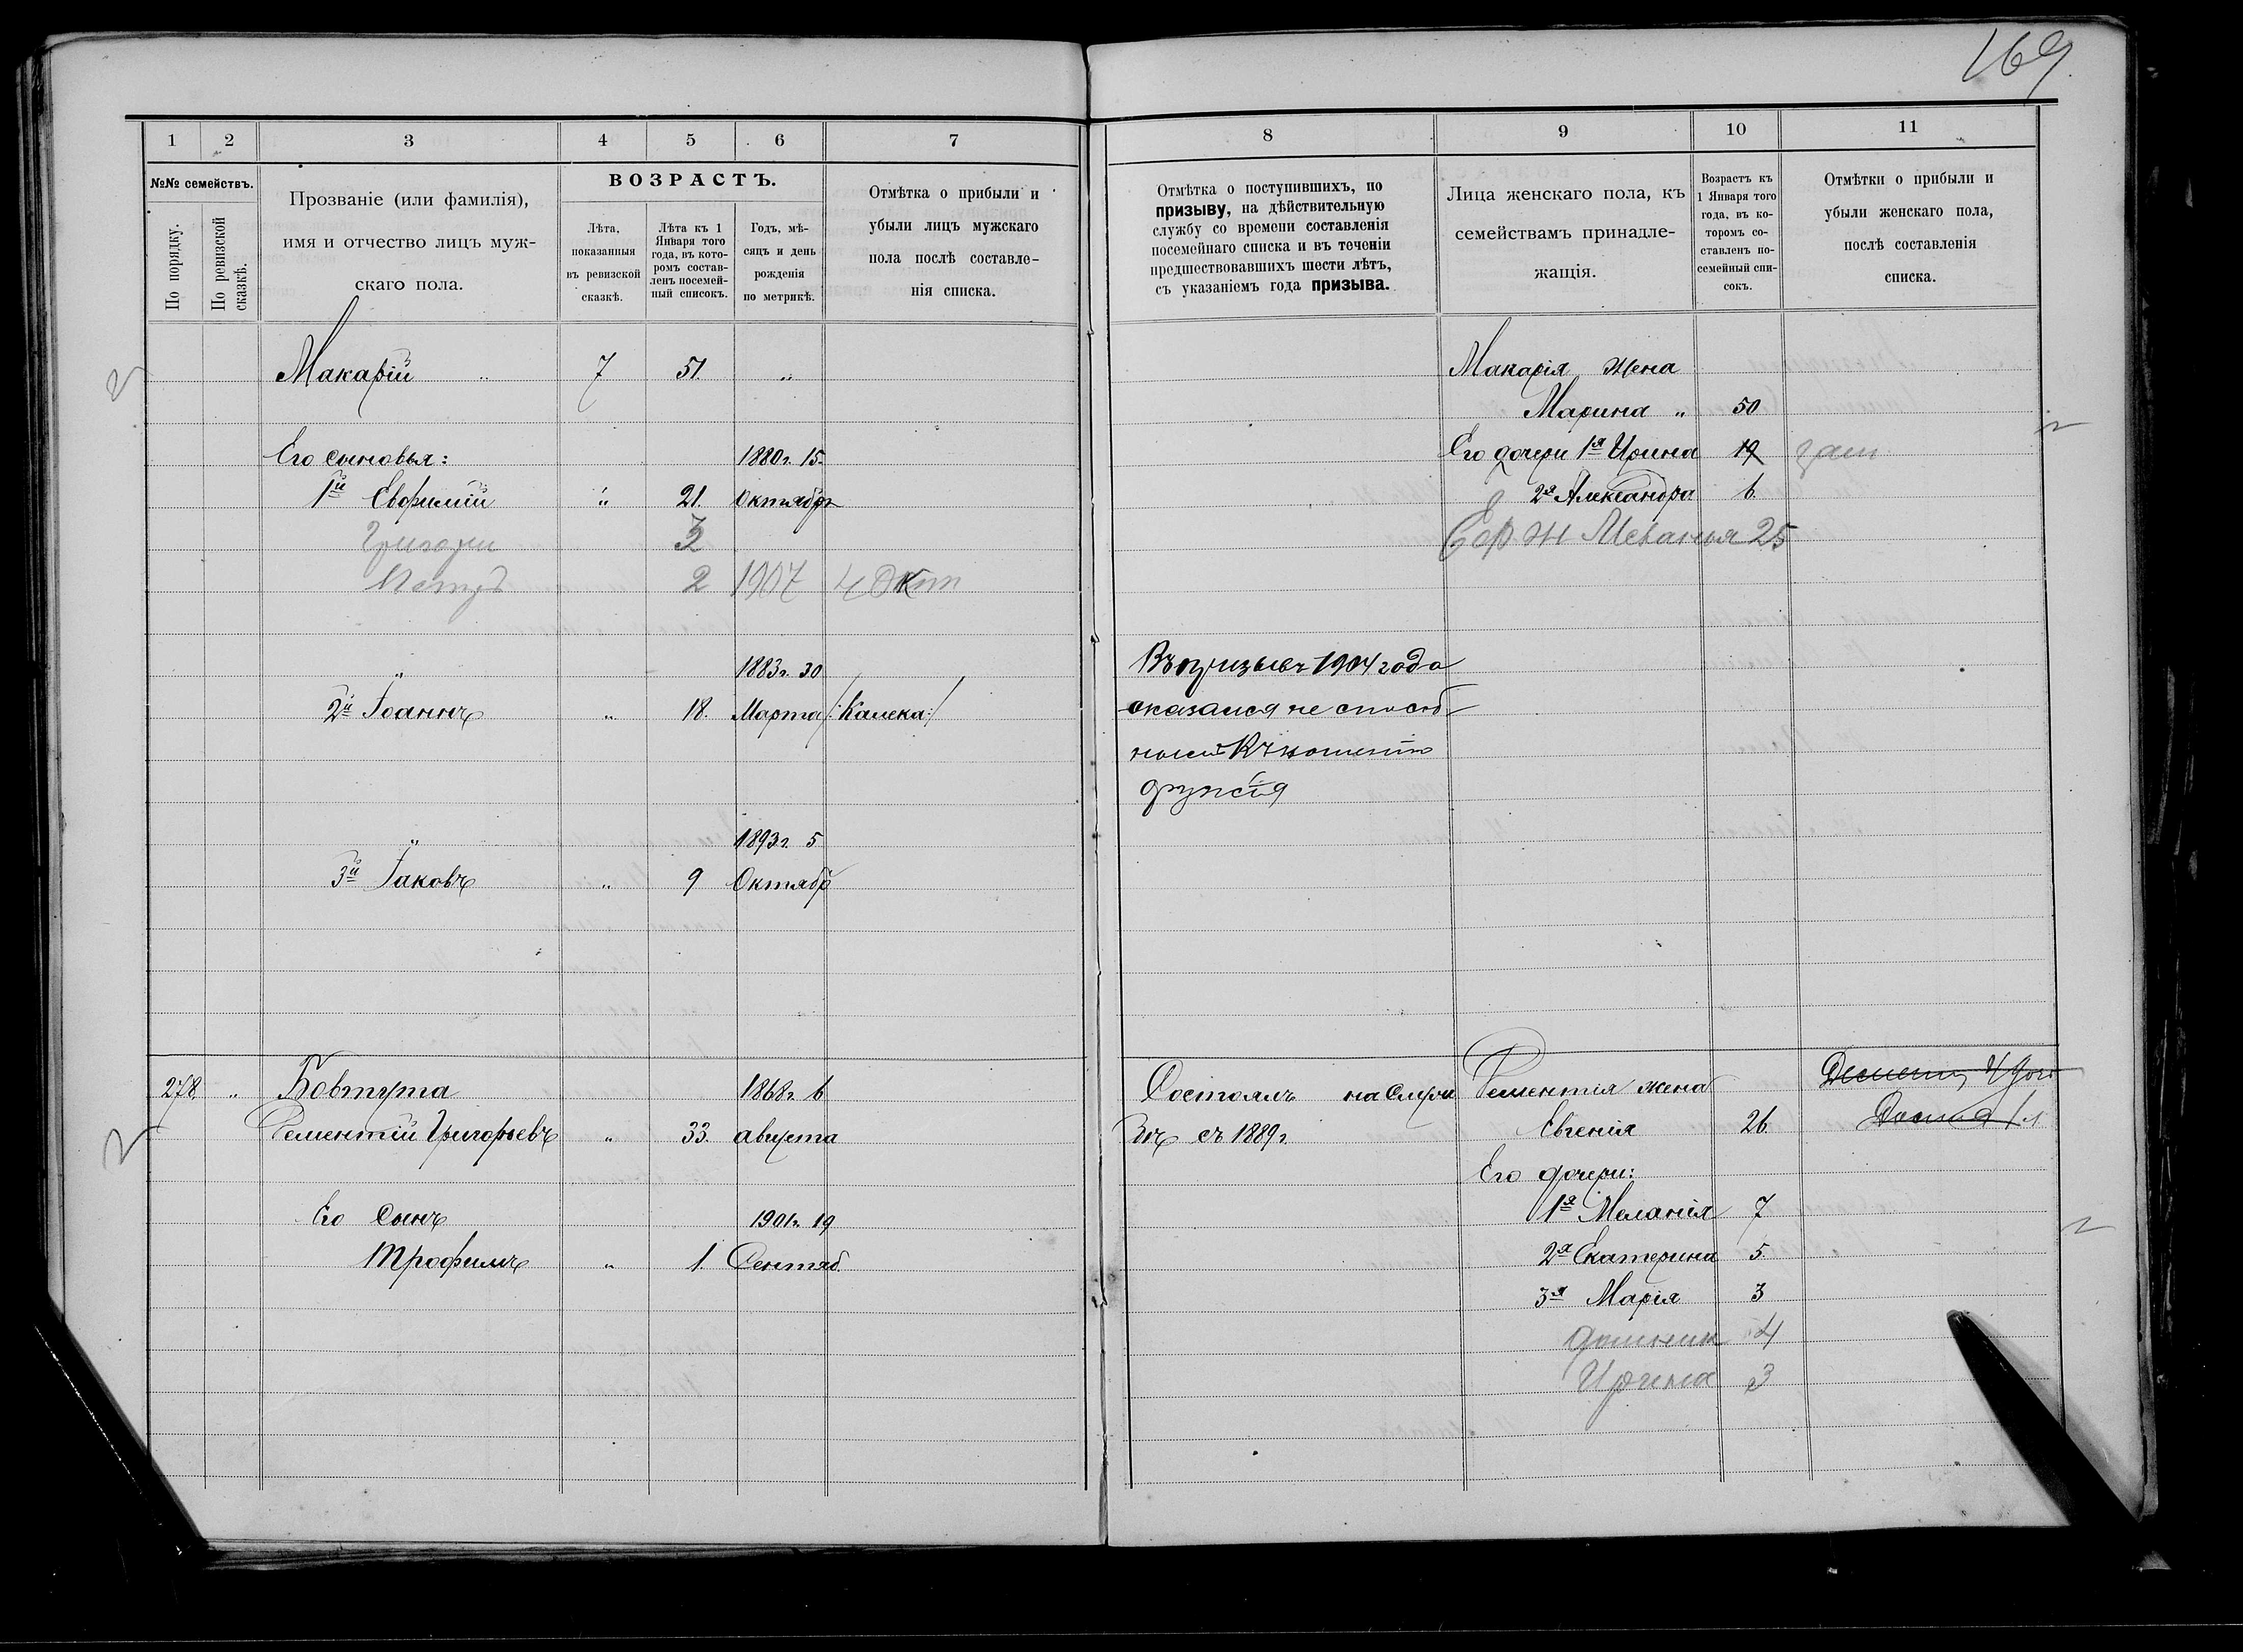 169
1 2 3 4 5 6 7
№№ семействъ.
По порядку.
По ревизской сказкѣ.
Прозваніе (или фамилія),
имя и отчество лицъ муж-
скаго пола.
ВОЗРАСТЪ.
Лѣта,
показанныя
въ ревизской
сказкѣ.
Лѣта къ 1
Января того
года, въ кото-
ромъ состав-
ленъ посемей-
ный списокъ.
Годъ, мѣ-
сяцъ и день
рожденія
по метрикѣ.
Отмѣтка о прибыли и
убыли лицъ мужскаго
пола послѣ составле-
нія списка.
Макарій " 7 51. "
Его сыновья: 1880г. 15.
1й Евфимій " 21. Октябр
Григори
Петръ 2 1907 4 Окт
" 1883г. 30
2й Іоаннъ " 18. Марта /:Калека:/
" 1893г. 5
3й Іаковъ " 9 Октябр
278. " Бовтута 1868г. 6
Рементій Григорьевъ " 33. августа
Его Сынъ 1901г. 19
Трофимъ " 1. Сентяб.
8 9 10 11
Отмѣтка о поступившихъ, по
призыву, на дѣйствительную
службу со времени составленія
посемейнаго списка и въ теченіи
предшествовавшихъ шести лѣтъ,
съ указаніемъ года призыва.
Лица женскаго пола, къ
семействамъ принадле-
жащія.
Возрастъ къ
1 Января того
года, въ ко-
торомъ со-
ставленъ по-
семейный спи-
сокъ.
Отмѣтки о прибыли и
убыли женскаго пола,
послѣ составленія
списка.
Макарія жена
Марина " 50
Его дочери 1я Ирина 19 зам
2я Александра 6
Меланья 25
Въ призывъ 1904 года
оказался не способ-
нымъ къ ношенію
оружія
Состоялъ на Служ
бѣ съ 1889г.
Рементія жена
Евгенія 26
Его дочери:
1я Меланія 7
2я Екатерина 5.
3я Марія 3
4
Ирина 3